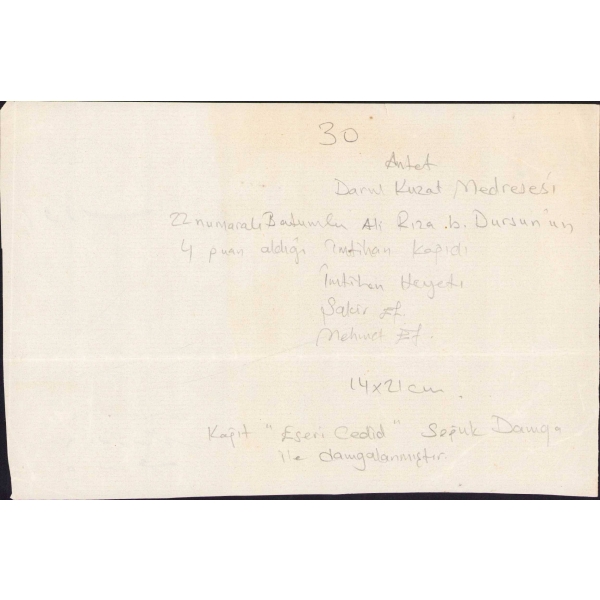 30
Antet
Darul Kuzat Medresesi
22 numaralı Batumlu Ali Rıza .b. Dursun'un
4 puan aldığı İmtihan Kağıdı
İmtihan Heyeti
Şakir Ef.
Mehmet Ef.
14x21 cm.
Kağıt "Eseri Cedid" Soğuk Damga
ile damgalanmıştır.